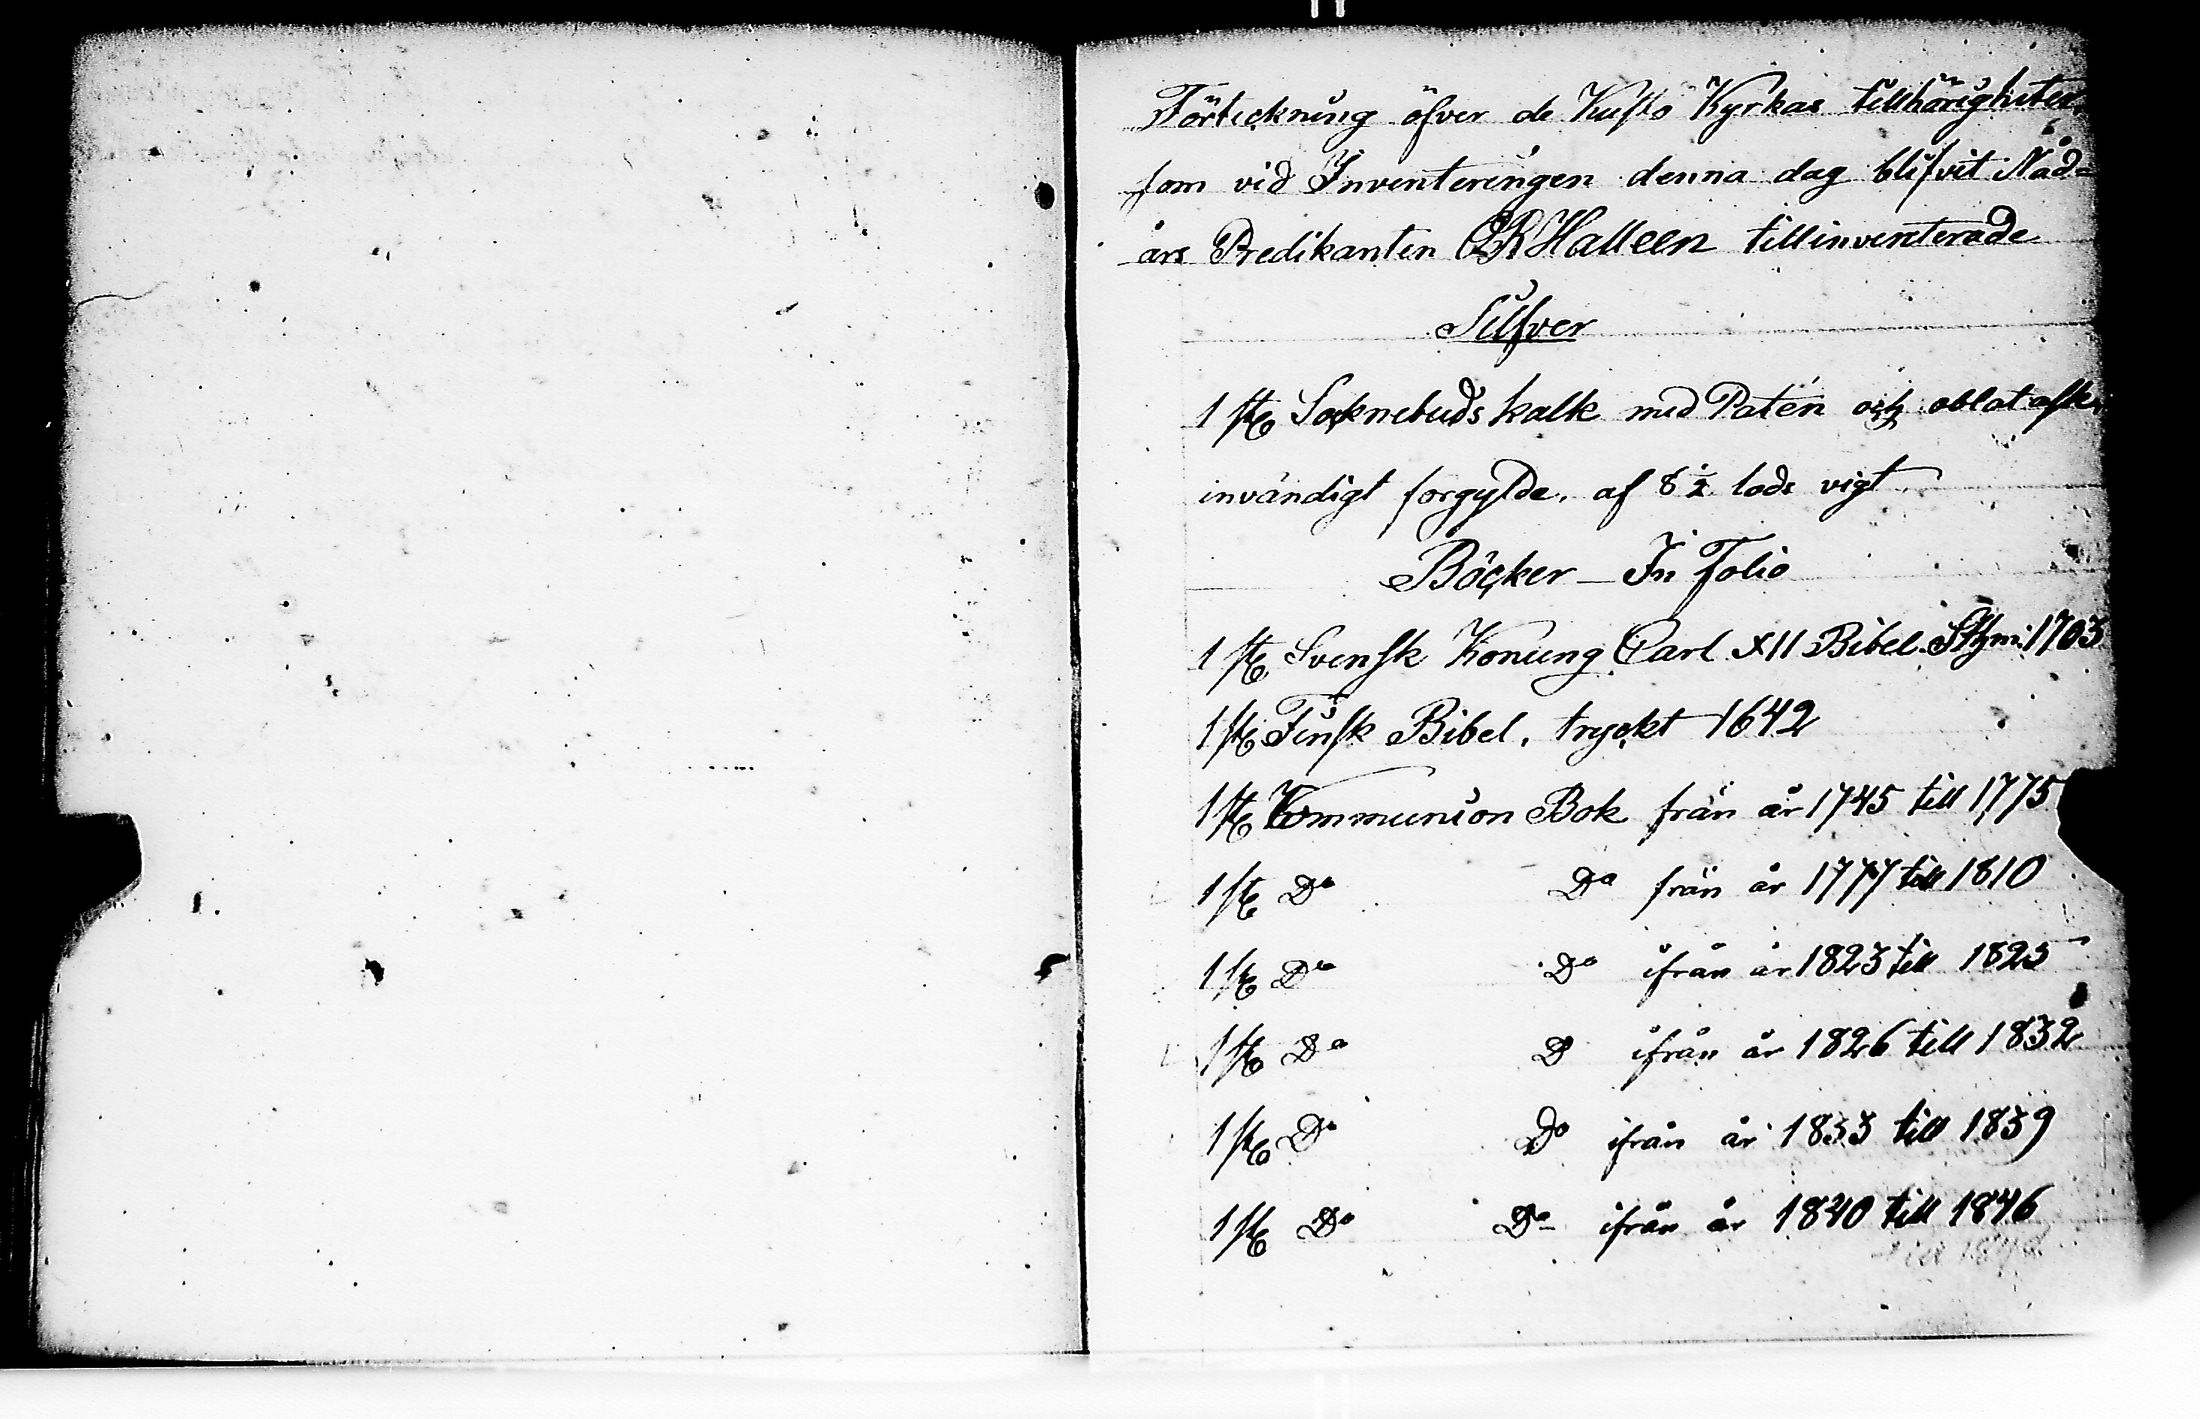 Förteckning öfver de Kusto Kyrkas tillhörigheter
som vid Inventeringen denna dag blifvit Nåd-
års Predikanten Halleen tillinventerade
Silfver
1 st Socknebuds kalk med Patén och oblatask
invändigt forgylde, af 8 1/2 lods vigt
Böcker - In Folio
1 st Svensk Konung Carl XII Bibel Sthm: 1703
1 st Finsk Bibel, tryckt 1642
1 st Kommunion Bok från år 1745 till 1775
1 st Do Do från år 1777 till 1810
1 st Do Do ifrån år 1823 till 1825
1 st Do D ifrån år 1826 till 1832
1 st Do Do ifrån år 1833 till 1839
1 st Do Do ifrån år 1840 till 1846